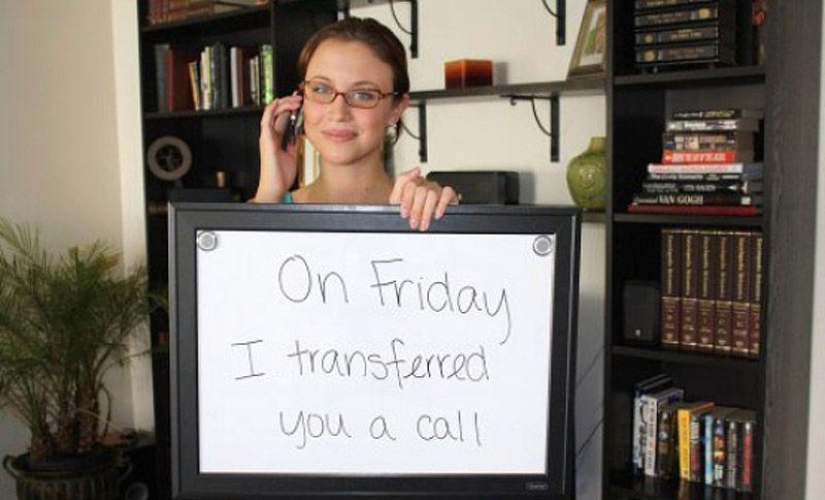 On Friday
I transferred
you a call
VAN GOGH